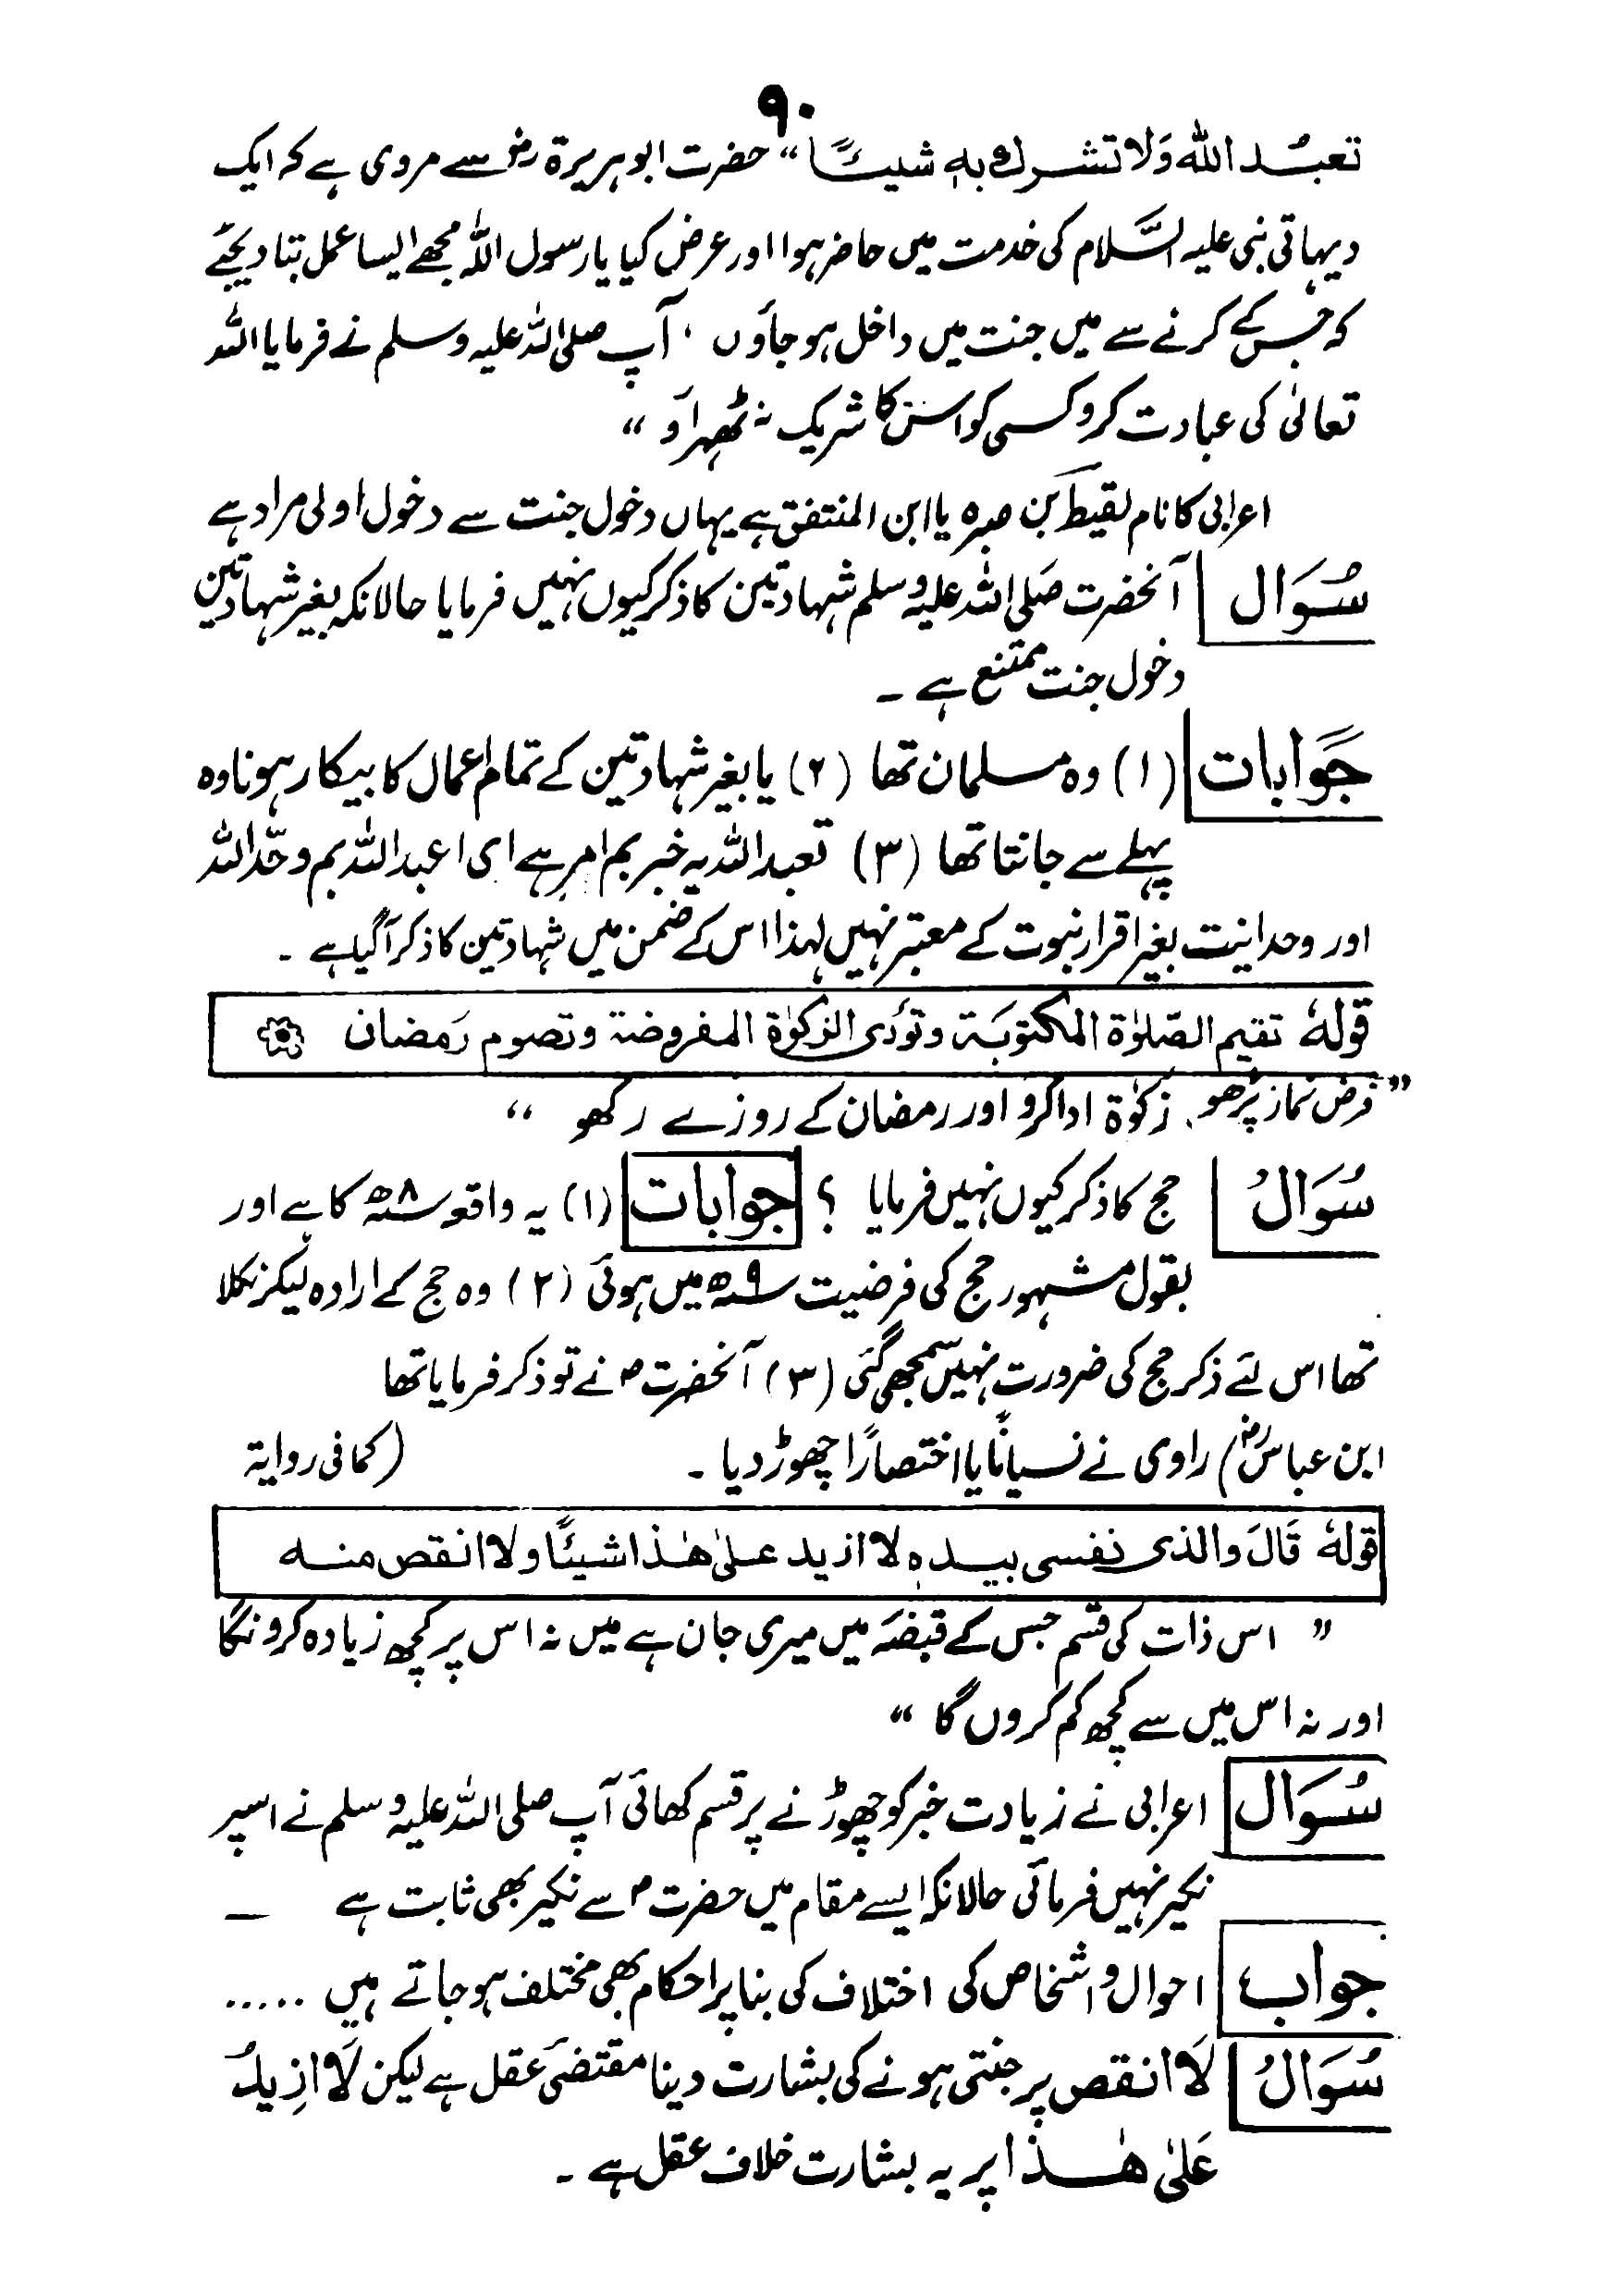 ۹۰
تعبُد الله وَلا تشرك بہٖ شیئًا“ حضرت ابوہریرۃ رضؓ سے مروی ہے کہ ایک
دیہاتی نبی علیہ السَّلام کی خدمت میں حاضر ہوا اور عرض کیا یا رسول اللہ مجھے ایسا عمل بتا دیجئے
کہ جس کے کرنے سے میں جنت میں داخل ہو جاؤں ، آپ صلی اللہ علیہ وسلم نے فرمایا اللہ
تعالیٰ کی عبادت کرو کسی کو اس کا شریک نہ ٹھہراؤ “
اعرابی کا نام لقیط بن صبرہ یا ابن المنتفق ہے یہاں دخول جنت سے دخول اولی مراد ہے
سُوَال آنحضرت صَلی اللہ علیہ وسلم شہادتین کا ذکر کیوں نہیں فرمایا حالانکہ بغیر شہادتین
دخول جنت ممتنع ہے ۔
جَوَابات (۱) وہ مسلمان تھا (۲) یا بغیر شہادتین کے تمام اعمال کا بیکار ہونا وہ
پہلے سے جانتا تھا (۳) تعبد اللہ یہ خبر بم امر ہے ای اعبد اللہ بم وحّد اللہ
اور وحدانیت بغیر اقرار نبوت کے معتبر نہیں لہذا اس کے ضمن میں شہادتین کا ذکر آگیا ہے ۔
قولهٗ تقیم الصّلوٰة المکتوبَة وتؤدی الزکوٰة المفروضة وتصوم رَمضان
” فرض نماز پڑھو ، زکوٰۃ ادا کرو اور رمضان کے روزے رکھو “
سُوَالُ حج کا ذکر کیوں نہیں فرمایا ؟ جوابات (۱) یہ واقعہ ۸ھ کا ہے اور
بقول مشہور حج کی فرضیت ۹ھ میں ہوئی (۲) وہ حج کے ارادہ لیکر نکلا
تھا اس لئے ذکر حج کی ضرورت نہیں سمجھی گئی (۳) آنحضرت ؐ نے تو ذکر فرمایا تھا
ابن عباس رضؓ) راوی نے نسیانًا یا اختصارًا چھوڑ دیا ۔ (کما فی روایۃ
قولهٗ قَالَ والذی نفسی بیدہٖ لا ازید علیٰ هٰذا شیئًا ولا انقص منه
” اس ذات کی قسم جس کے قبضہ میں میری جان ہے میں نہ اس پر کچھ زیادہ کرونگا
اور نہ اس میں سے کچھ کم کروں گا “
سُوَال اعرابی نے زیادت خبر کو چھوڑنے پر قسم کھائی آپ صلی اللہ علیہ وسلم نے اسپر
نکیر نہیں فرمائی حالانکہ ایسے مقام میں حضرت ؐ سے نکیر بھی ثابت ہے ـ
جواب احوال و اشخاص کی اختلاف کی بنا پر احکام بھی مختلف ہو جاتے ہیں .....
سُوَالُ لَا انقص پر جنتی ہونے کی بشارت دینا مقتضیٔ عقل ہے لیکن لَا ازِیدُ
عَلیٰ هٰذا پر یہ بشارت خلاف عقل ہے ۔